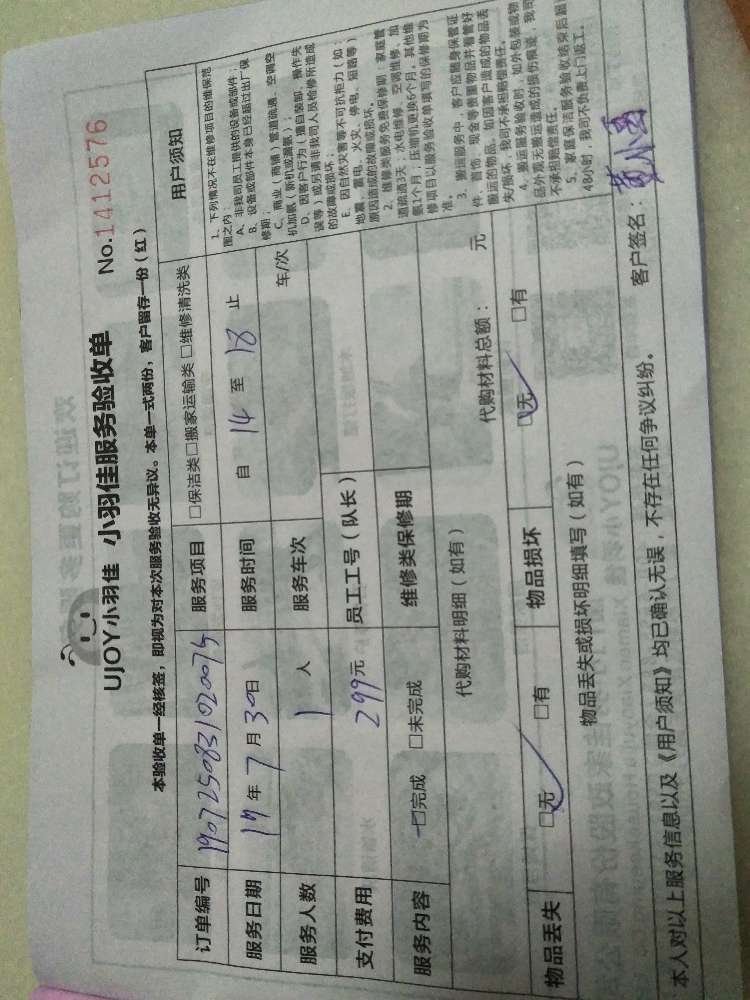 UJOY小羽佳 小羽佳服务验收单 No.1412576
本验收单一经核签，即视为对本次服务验收无异议。本单一式两份，客户留存一份（红）
订单编号 190725083102007 服务项目 □保洁类□搬家运输类□维修清洗类 用户须知
服务日期 19年7月30日 服务时间 自 14 至 18 止
服务人数 1 人 服务车次 车/次
支付费用 299元 员工工号（队长）
服务内容 □完成 □未完成 维修类保修期
代购材料明细（如有） 代购材料总额： 元
物品丢失 □无 □有 物品损坏 □无 □有
物品丢失或损坏明细填写（如有）
1、下列情况不在维修项目的维保范
围之内：
A、非我司员工提供的设备或部件；
B、设备或部件本身已经超过出厂保
修期；
C、商业（商铺）管道疏通、空调空
机加氟（新机或漏氟）；
D、因客户行为（擅自装卸、操作失
误等）或另请非我司人员检修所造成
的故障或损坏；
E、因自然灾害等不可抗拒力（如：
地震、雷电、火灾、停电、短路等）
原因造成的故障或损坏。
2、维修类服务免费保修期，家庭管
道疏通3天；水电维修、空调维修、加
氟1个月，压缩机更换6个月，其他维
修项目以服务验收单填写的保修期为
准。
3、搬运服务中，客户应随身保管证
件、首饰、现金等贵重物品并看管好
搬运的物品，如因客户造成的物品丢
失/损坏，我司不承担赔偿责任。
4、搬运服务验收时，如外包装或物
品外观无搬运造成的损伤痕迹，我司
不承担赔偿责任。
5、家庭保洁服务验收结束后超
48小时，我司不负责上门返工。
本人对以上服务信息以及《用户须知》均已确认无误，不存在任何争议纠纷。 客户签名：